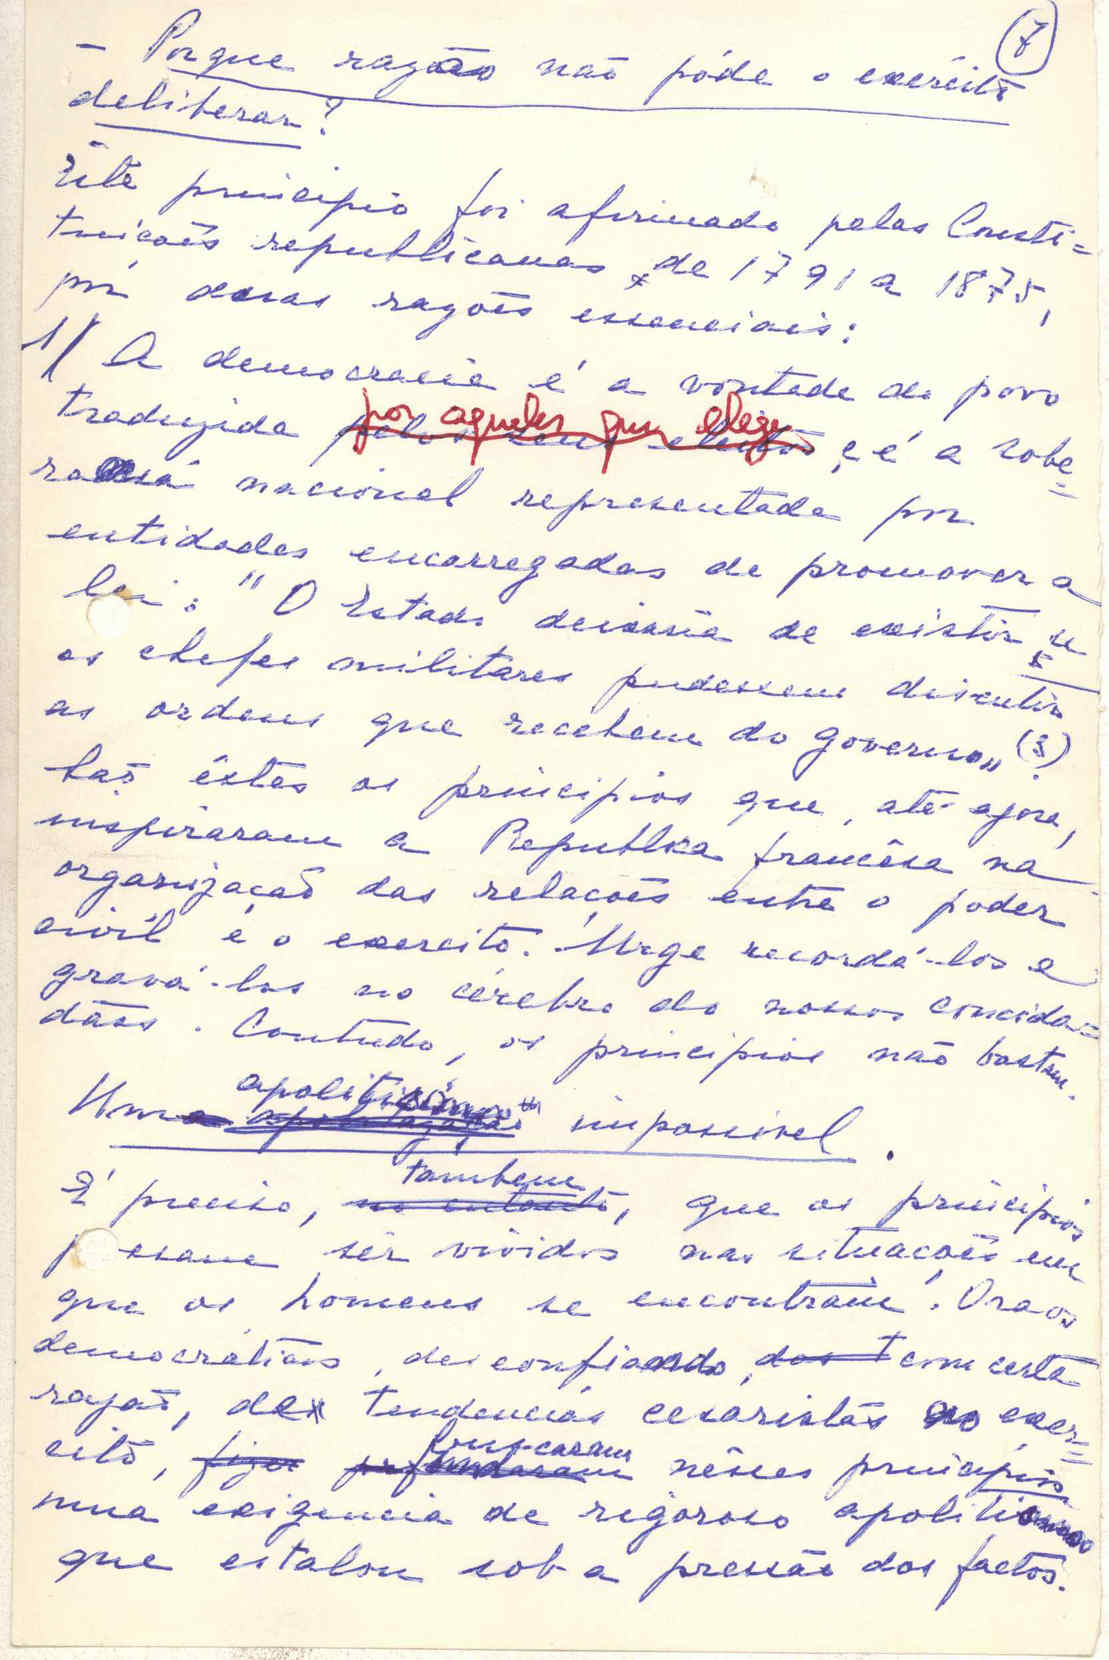 7
- Porque razão não póde o exército
deliberar?
Este principio foi afirmado pelas Consti=
tuições republicanas de 1791 a 1875,
por duas razões essenciais:
1) A democracia é a vontade do povo
por aqueles que elege
traduzida pelos seus eleitos, e é a sobe=
rania nacional representada por
entidades encarregadas de promover a
lei: "O Estado deixaria de existir se
os chefes militares pudessem discutir
as ordens que recebem do governo" (3)
São êstes os principios que, até agora,
inspiraram a Republica francêsa na
organização das relações entre o poder
civil e o exercito. Urge recordá-los e
gravá-los no cérebro do nossos concida=
dãos. Contudo, os principios não bastam.
apolitismo
Uma impossivel.
tambem
É preciso, no entanto, que os principios
possam sêr vividos nas situações em
que os homens se encontram. Ora os
democráticos, desconfiando, com certa
razão, das tendencias cesaristas no exer=
buscaram
cito, nêsses principios
uma exigencia de rigoroso apolitismo
que estalou sob a pressão dos factos.